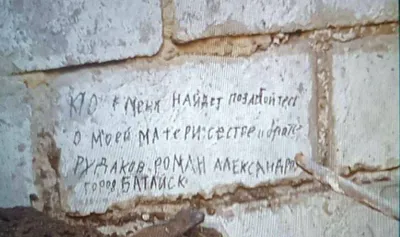 КТО меня найдет позаботьтесь
о моей матери: сестре и брате
Рудаков Роман Александро
город Батайск